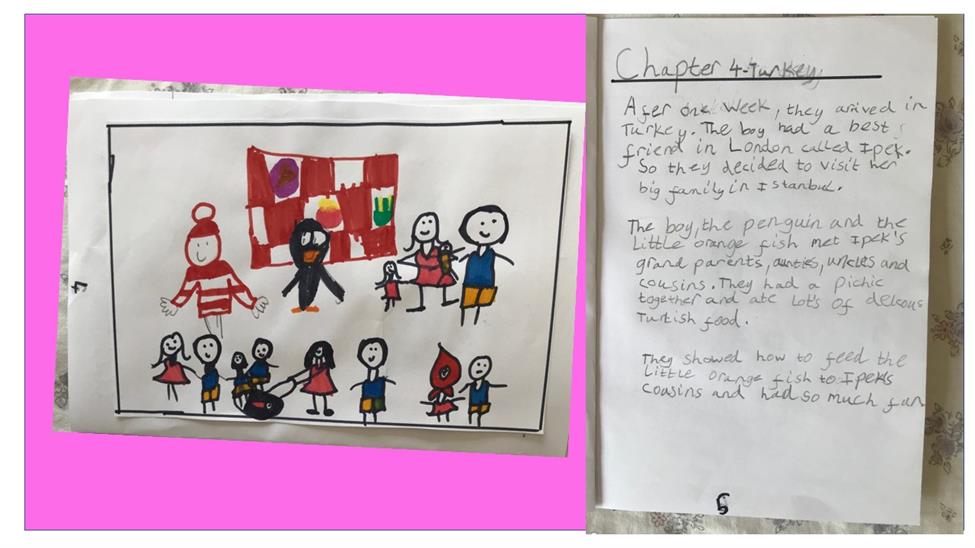 4
Chapter 4-Turkey
Afer one week, they arived in
Turkey. The boy had a best
friend in London called Ipek.
So they decided to visit her
big family in Istanbul.
The boy, the penguin and the
Little orange fish met Ipek's
grand parents, aunties, uncles and
cousins. They had a picnic
together and ate lots of delcous
Turtish food.
They showed how to feed the
Little orange fish to Ipek's
cousins and had so much fun
5